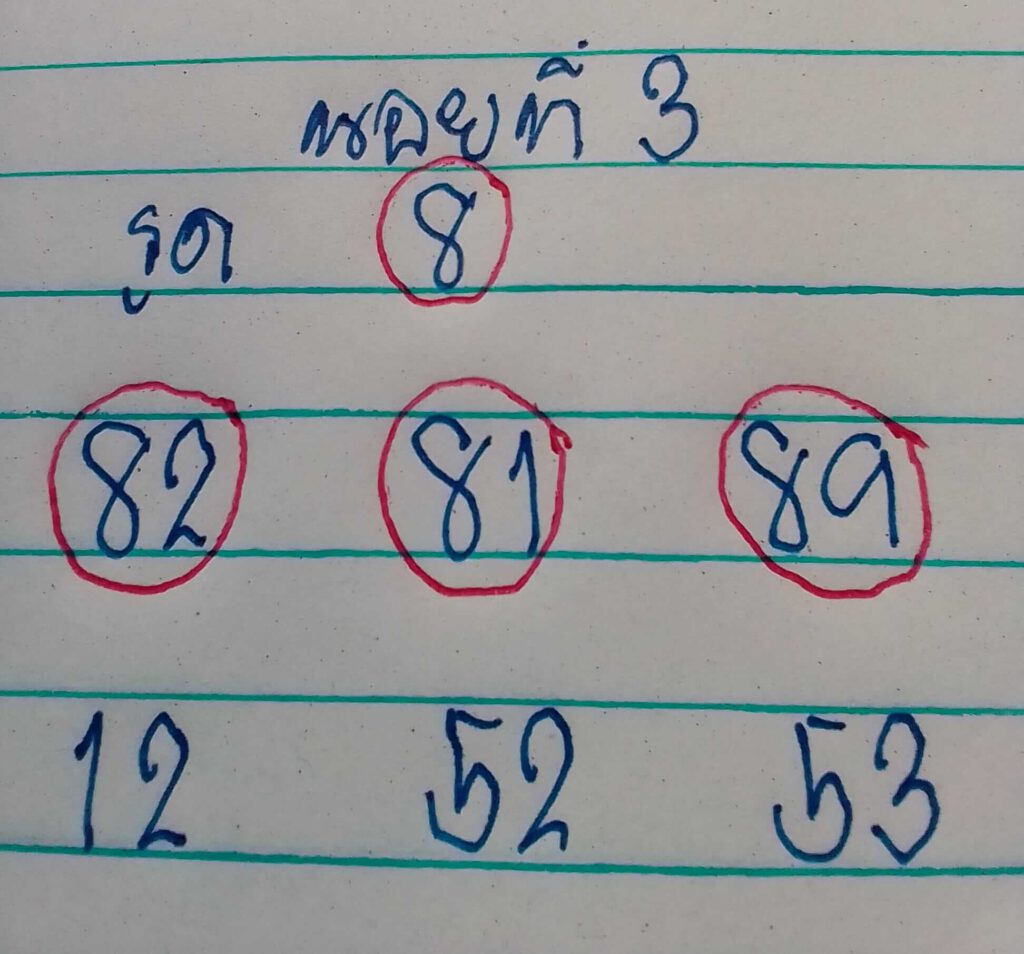 หอยที่ 3
รูด 8
82 81 89
12 52 53